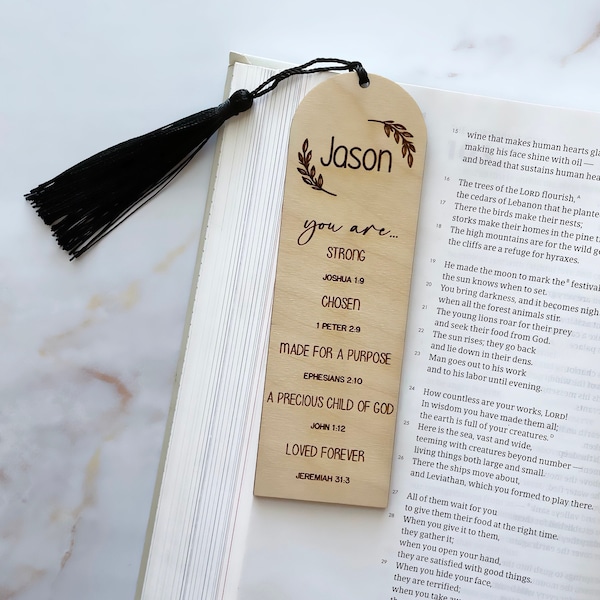 Jason
you are...
STRONG
JOSHUA 1:9
CHOSEN
1 PETER 2:9
MADE FOR A PURPOSE
EPHESIANS 2:10
A PRECIOUS CHILD OF GOD
JOHN 1:12
LOVED FOREVER
JEREMIAH 31:3
15 wine that makes human hearts
making his face shine with oil —
and bread that sustains human
16 The trees of the LORD flourish, A
the cedars of Lebanon that he
17 There the birds make their nests;
storks make their homes in the pine
18 The high mountains are for the wild
the cliffs are a refuge for hyraxes.
19 He made the moon to mark the B
the sun knows when to set.
20 You bring darkness, and it becomes
when all the forest animals stir.
21 The young lions roar for their prey
and seek their food from God.
22 The sun rises; they go back
and lie down in their dens.
23 Man goes out to his work
and to his labor until evening.
24 How countless are your works, LORD!
In wisdom you have made them all;
the earth is full of your creatures. C
25 Here is the sea, vast and wide,
teeming with creatures beyond number —
living things both large and small.
26 There the ships move about,
and Leviathan, which you formed to play there.
27 All of them wait for you
to give them their food at the right time.
28 When you give it to them,
they gather it;
when you open your hand,
they are satisfied with good things.
29 When you hide your face,
they are terrified;
when you take away